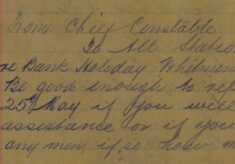 From Chief Constable
To All Statio
re Bank Holiday Whitmon
Be good enough to rep
25th May if you will
assistance or if you
any men, if so how m